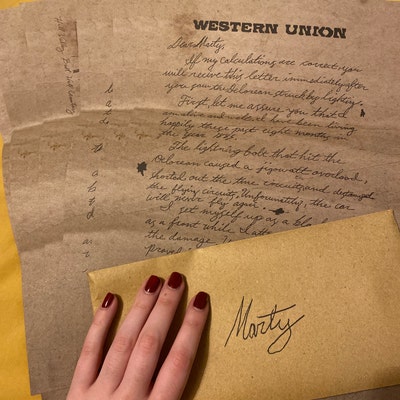 WESTERN UNION
Dear Marty;
If my calculations are correct, you
will recieve this letter immediately after
you saw the DeLorean struck by lighting.
First, let me assure you that I
am alive and well. I have been living
happily these past eight months in
the year 1885.
The lightning bolt that hit the
DeLorean caused a jigowatt overload,
shorted out the time circuits and destroyed
the flying circuits. Unfortunately, the car
will never fly again.
I set myself up as a
as a front while I
the damage
Marty